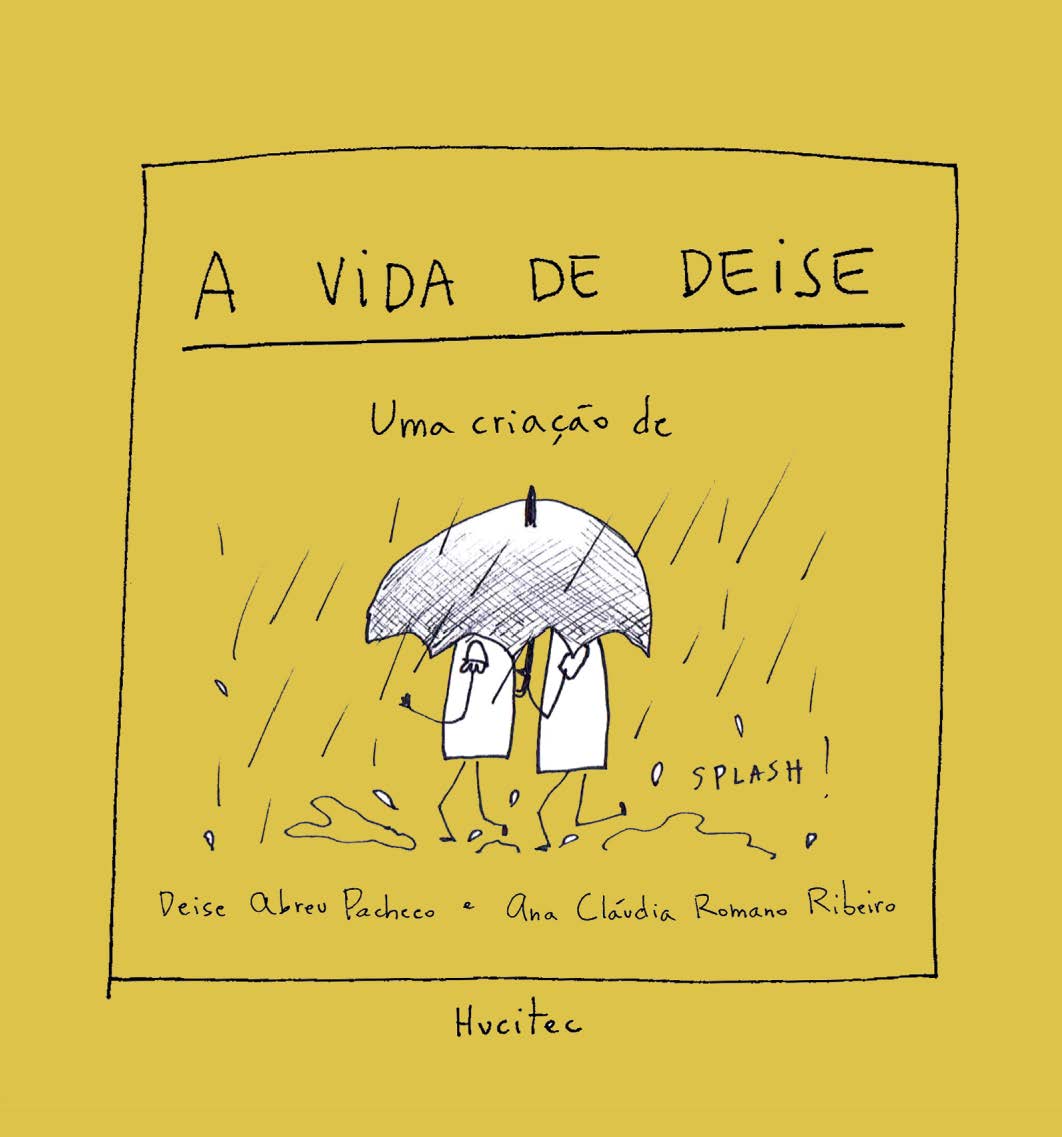 A ViDA DE DEiSE
Uma criação de
SPLASH!
Deise Abreu Pacheco e Ana Cláudia Romano Ribeiro
Hucitec